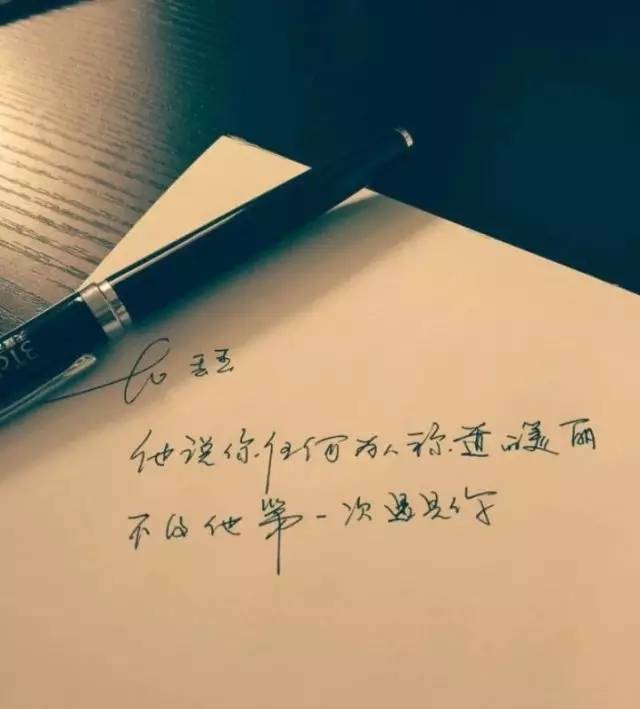 to
他说你任何为人称道的美丽
不及他第一次遇见你